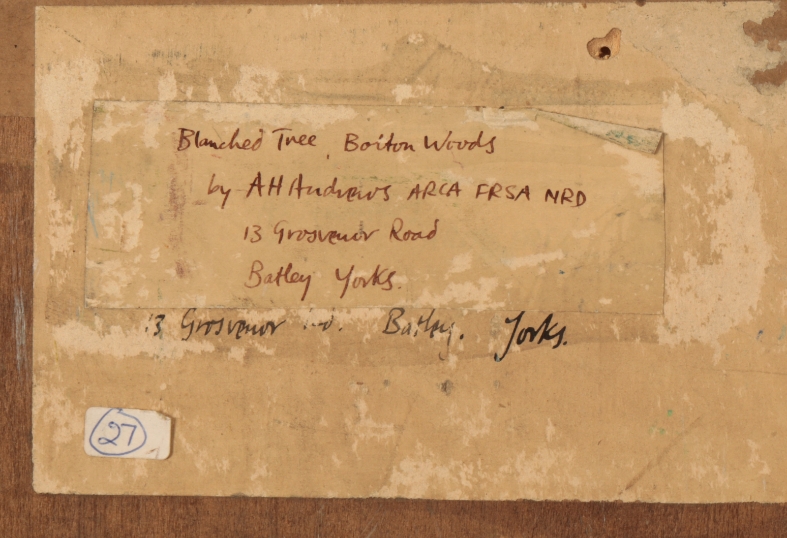 Blanched Tree, Boiton Woods
by AH Andrews ARCA FRSA NRD
13 Grosvenor Road
Batley Yorks.
13 Grosvenor Batley. Yorks.
27